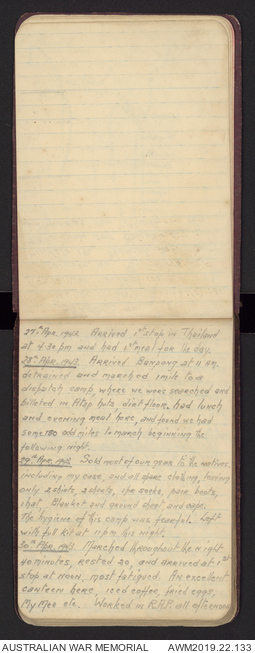 27th Apr. 1943. Arrived 1st stop in Thailand
at 4.30 pm and had 1st meal for the day.
28th Apr. 1943. Arrived Banpong at 11 am.
detrained and marched 1 mile to a
despatch camp, where we were searched and
billeted in Atap huts, dirt floor. Had lunch
and evening meal here, and found we had
some 180 odd miles to march beginning the
following night.
29th Apr. 1943. Sold most of our gear to the natives,
including my case, and all spare clothing, leaving
only 2 shirts, 2 shorts, pair boots,
1 hat, Blanket and ground sheet and cape.
The hygiene of this camp was fearful. Left
with full kit at 11 pm this night.
30th Apr. 1943. Marched throughout the night
40 minutes, rested 20, and arrived at 1st
stop at noon, most fatigued. An excellent
canteen here, iced coffee, fried eggs,
My Mee etc. Worked in R.A.P. all afternoon
AUSTRALIAN WAR MEMORIAL
AWM2019.22.133